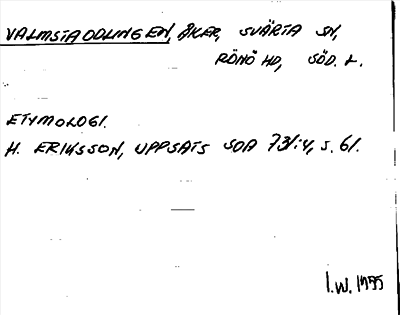 VALMSTAODLINGEN, ÅKER, SVÄRTA SN,
RÖNÖ HD, SÖD. L.
ETYMOLOGI.
H. ERIKSSON, UPPSATS SOA 73/:4, S. 61.
I.W. 1975